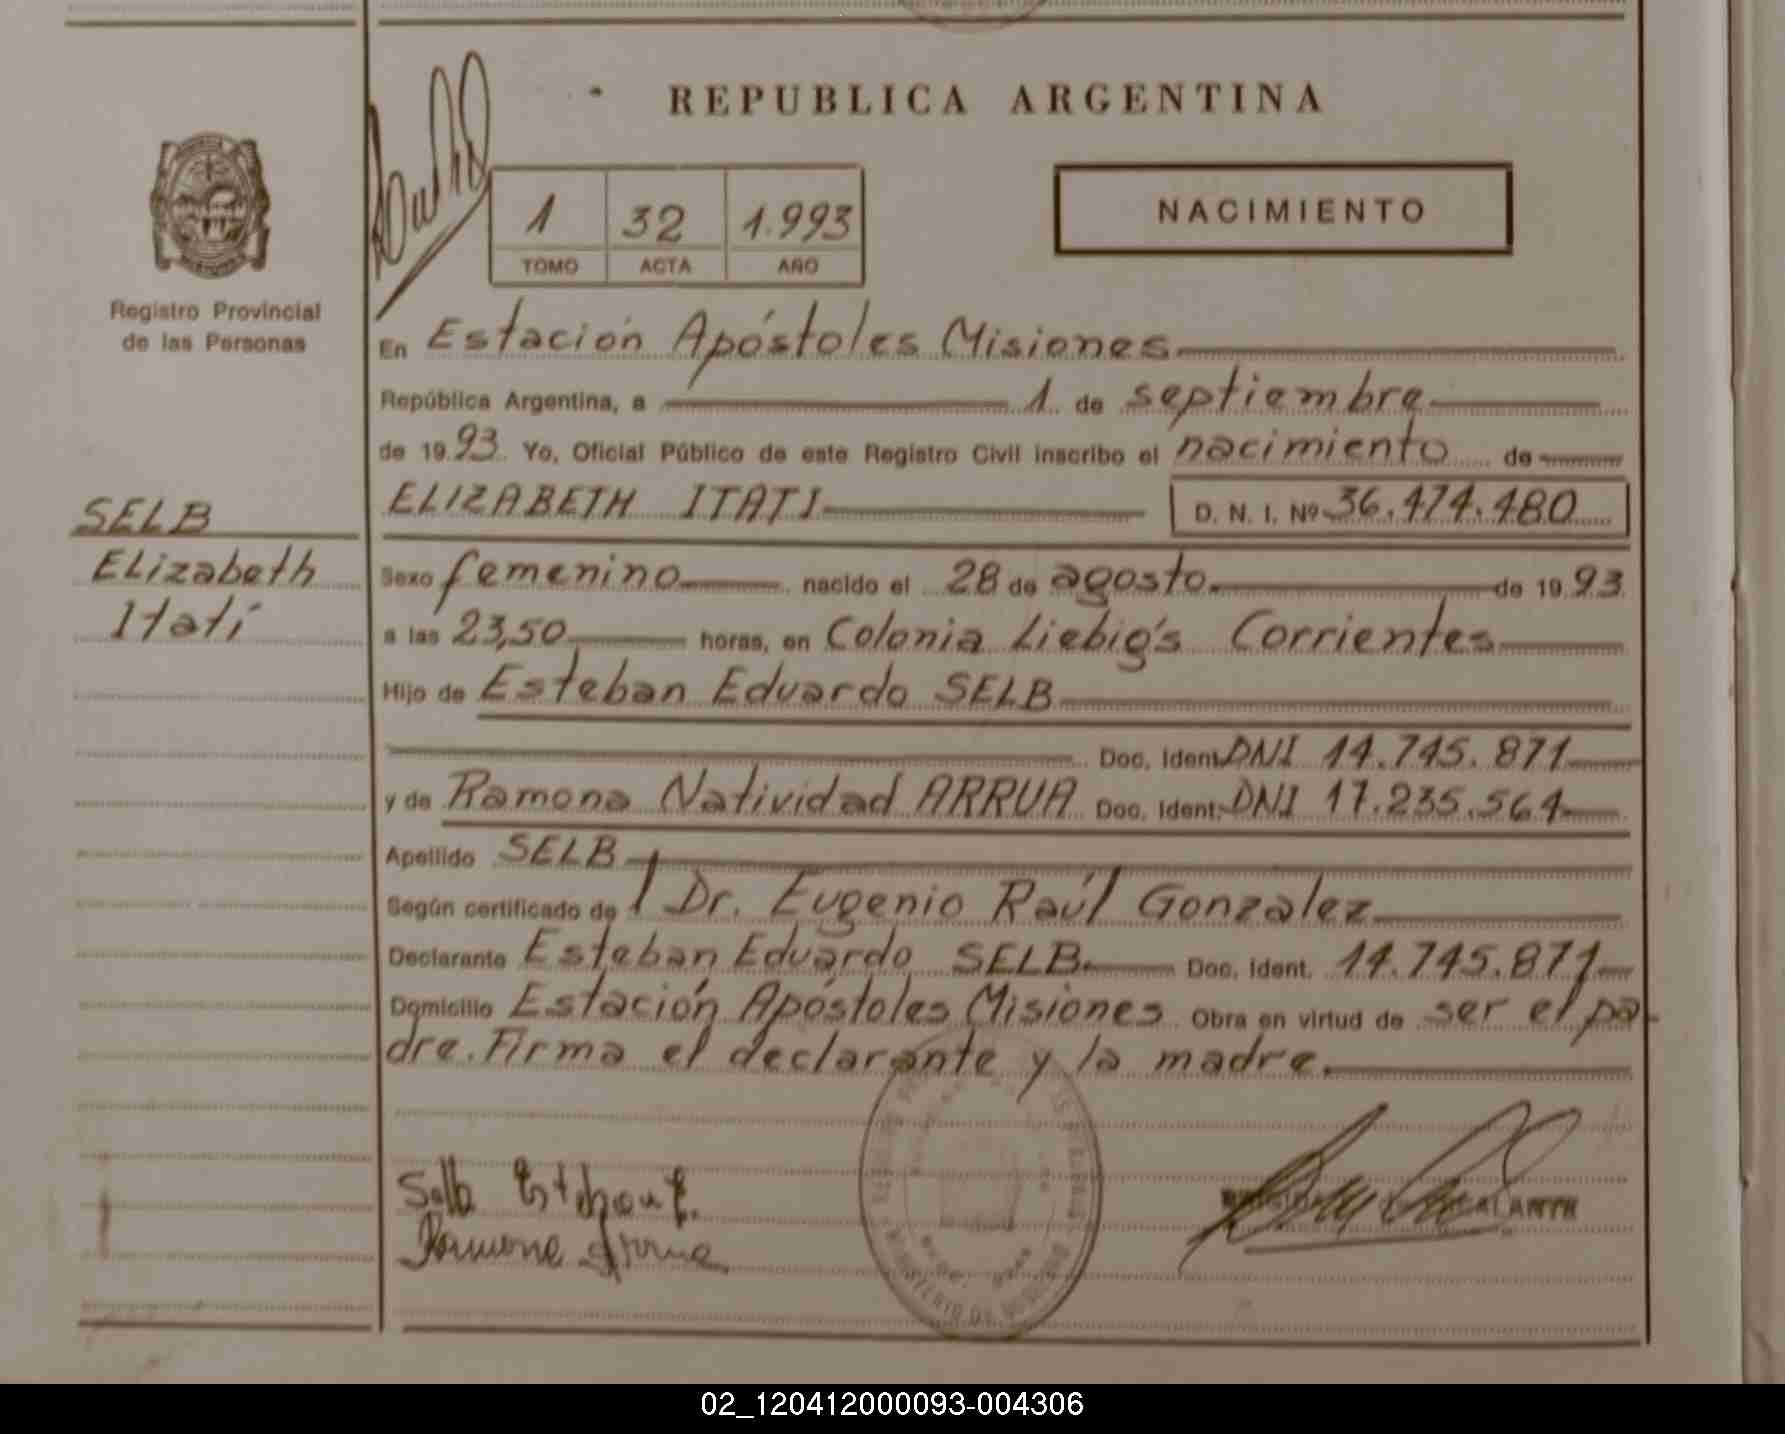 REPUBLICA ARGENTINA
1 32 1.993
TOMO ACTA AÑO
NACIMIENTO
Registro Provincial
de las Personas
En Estación Apóstoles Misiones
República Argentina, a 1 de septiembre
de 1993. Yo, Oficial Público de este Registro Civil inscribo el nacimiento de
ELIZABETH ITATI D. N. I. Nº 36.474.480
SELB
Elizabeth
Itatí
Sexo femenino nacido el 28 de agosto de 1993
a las 23,50 horas, en Colonia Liebig's Corrientes
Hijo de Esteban Eduardo SELB
Doc. Ident. DNI 14.745.871
y de Ramona Natividad ARRUA Doc. Ident. DNI 17.235.564
Apellido SELB
Según certificado de Dr. Eugenio Raúl Gonzalez
Declarante Esteban Eduardo SELB Doc. Ident. 14.745.871
Domicilio Estación Apóstoles Misiones Obra en virtud de ser el pa-
dre. Firma el declarante y la madre.
Selb Esteban E.
Ramona Arrua
02_120412000093-004306